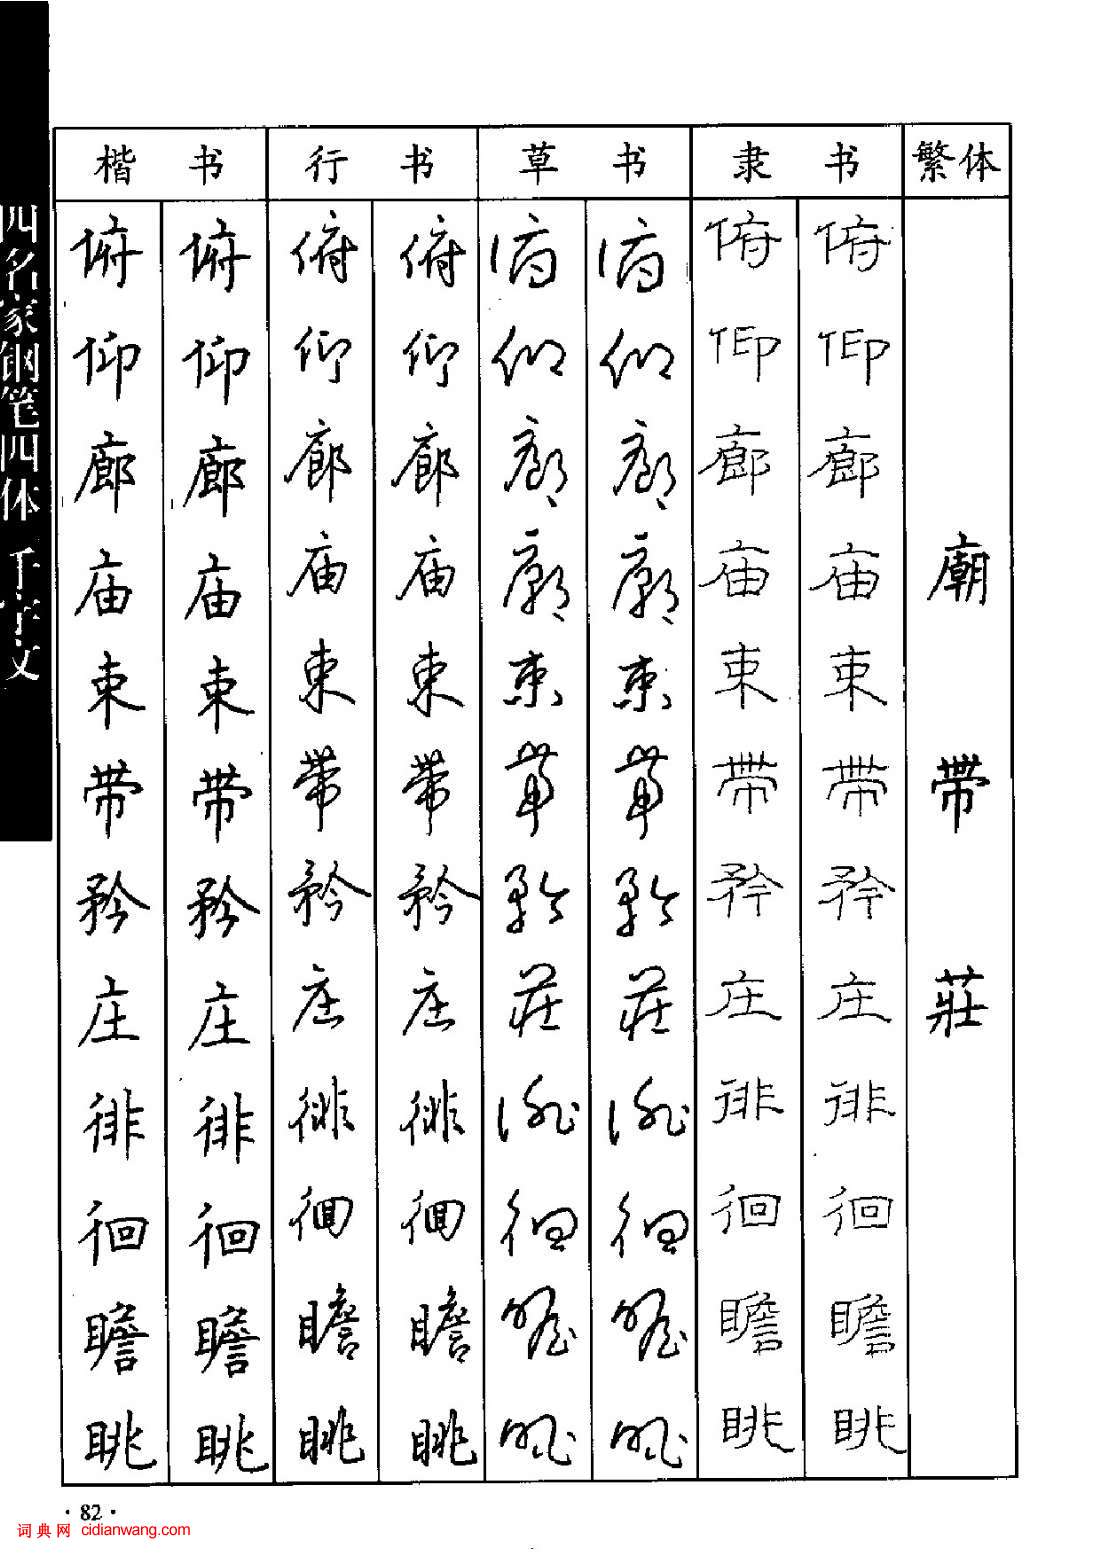 四名家钢笔四体 千字文
楷书 行书 草书 隶书 繁体
俯 俯 俯 俯 俯 俯 俯 俯
仰 仰 仰 仰 仰 仰 仰 仰
廊 廊 廊 廊 廊 廊 廊 廊
庙 庙 庙 庙 廟 廟 庙 庙 廟
束 束 束 束 束 束 束 束
带 带 帶 帶 帶 帶 帶 帶 帶
矜 矜 矜 矜 矜 矜 矜 矜
庄 庄 庄 庄 莊 莊 庄 庄 莊
徘 徘 徘 徘 徘 徘 徘 徘
徊 徊 徊 徊 徊 徊 徊 徊
瞻 瞻 瞻 瞻 瞻 瞻 瞻 瞻
眺 眺 眺 眺 眺 眺 眺 眺
·82·
词典网 cidianwang.com